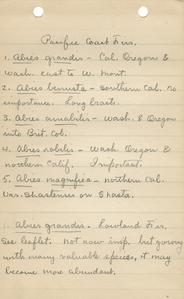 Pacific Coast Firs.
1. Abies grandis - Cal. Oregon &
Wash. east to W. Mont.
2. Abies venusta - Southern Cal. no
importance. Long bracts.
3. Abies amabilis - Wash. & Oregon
into Brit. Col.
4. Abies nobilis - Wash. Oregon &
northern Calif. Important.
5. Abies magnifica - northern Cal.
Var. Shastensis on Shasta.
1. Abies grandis. Lowland Fir.
See leaflet. Not now imp. but growing
with many valuable species, it may
become more abundant.